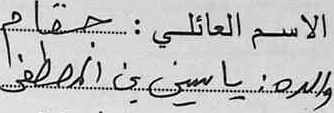 الاسم العائلي : حقام
والده: ياسين بن المصطفى